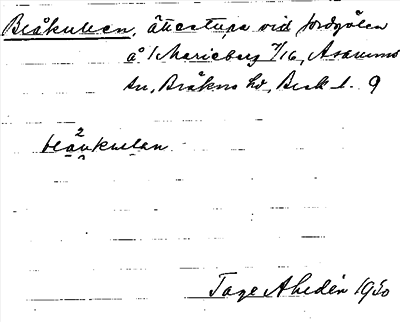 Blåkullen, ättestupa vid Jordgölen
å 1 Marieberg 7/16, Asarums
sn, Bräkne hd, Bl. l. 9
blåkullan
Tage Ahldén 1930